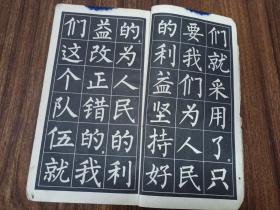 们就采用了。只
要我们为人民
的利益坚持好
的为人民的利
益改正错的，我
们这个队伍就